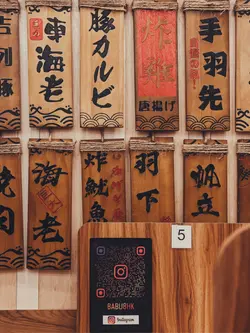 列豚
車海老
豚カルビ
炸雞
唐揚げ
手羽先
焼肉
海老
炸魷魚
羽下
帆立
5
BABUBHK
Instagram